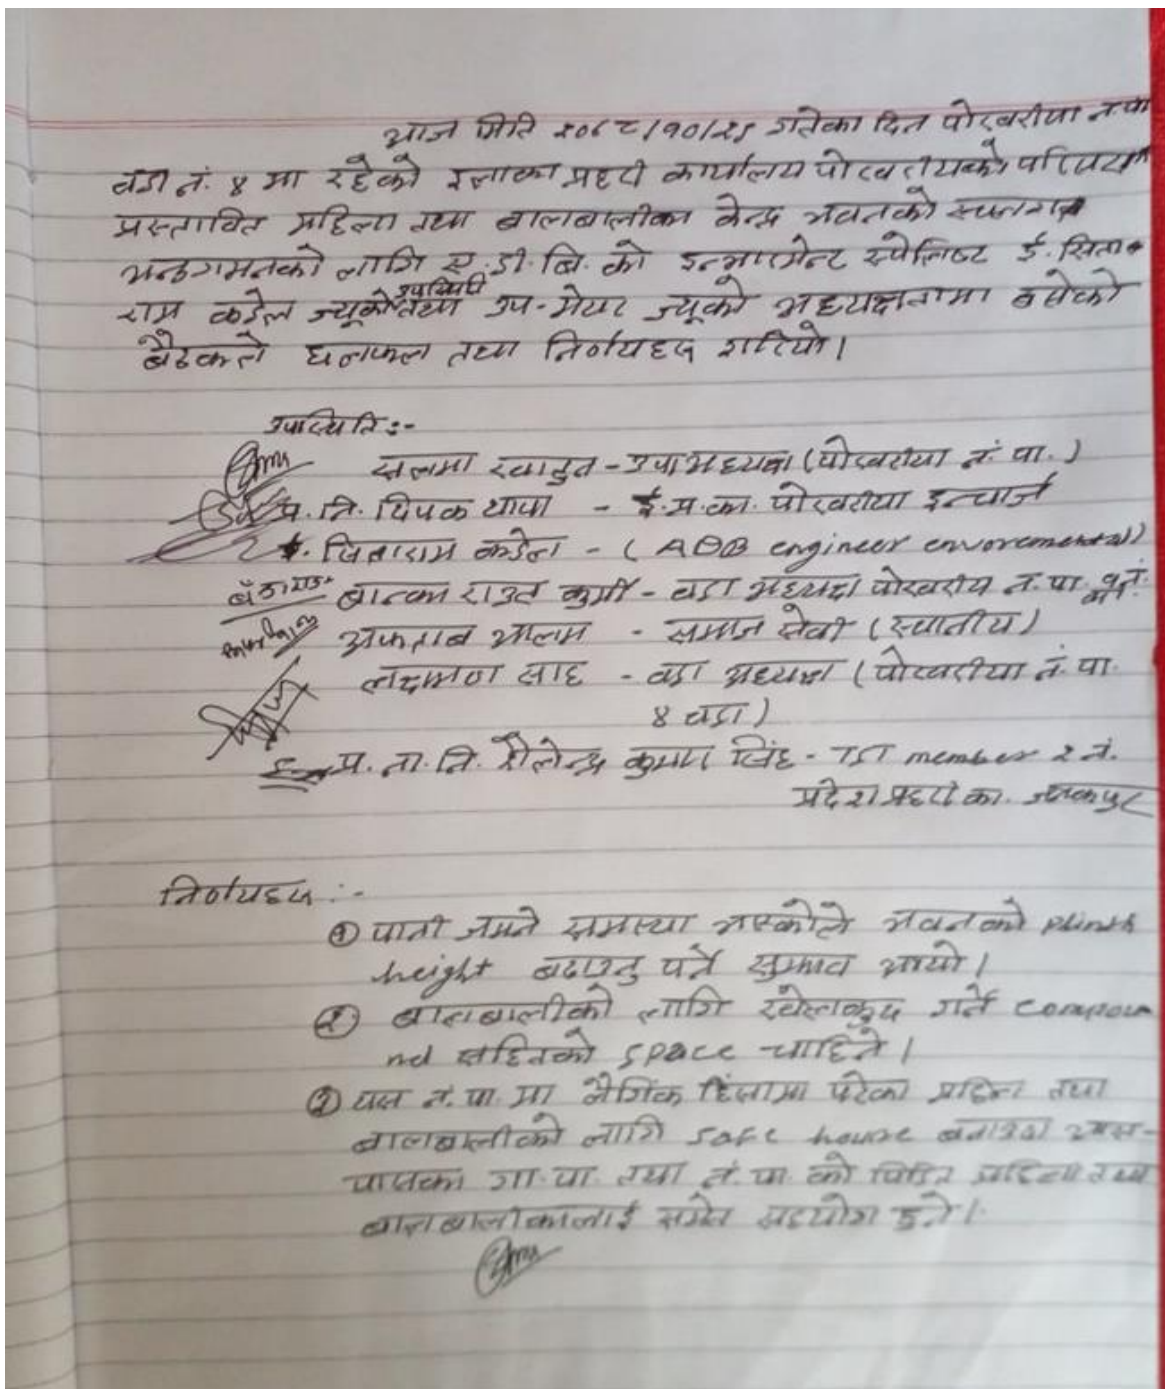 आज मिति २०७८/१०/२५ गतेका दिन पोखरीया न.पा
वडा नं. ४ मा रहेको इलाका प्रहरी कार्यालय पोखरीयाको परिसरमा
प्रस्तावित महिला तथा बालबालीका केन्द्र भवनको स्थलगत
अनुगमनको लागि ए.डी.बि. को इन्भारमेन्ट स्पेलिष्ट ई. सिता-
राम कडेल ज्यूको उपस्थिती तथा उप-मेयर ज्यूको अध्यक्षतामा बसेको
बैठकले छलफल तथा निर्णयहरू गरियो।
उपस्थिति :-
सलमा खातुन - उपाध्यक्ष (पोखरीया नं. पा.)
प्र. नि. दिपक थापा - ई.प्र.का. पोखरीया इन्चार्ज
ई. सिताराम कडेल - (ADB engineer envoremental)
बाल्का राउत कुर्मी - वडा अध्यक्ष पोखरीय न.पा.
अफताब आलम - समाज सेवी (स्थानीय)
लक्षमण साह - वडा अध्यक्ष (पोखरीया नं. पा.
४ वडा)
प्र. ना. नि. शैलेन्द्र कुमार सिंह - TST member २ नं.
प्रदेश प्रहरी का. जनकपुर
निर्णयहरू :-
① पानी जम्ने समस्या भएकोले भवनको plinth
height बढाउनु पर्ने सुझाव आयो।
② बालबालीको लागि खेलकुद गर्ने compou
nd सहितको space चाहिने।
③ यस न.पा. मा लैगिंक हिंसामा परेका महिला तथा
बालबालीको लागि safe house बनाउदा आस-
पासका गा.पा. तथा नं. पा. को पिडित महिला तथा
बालबालीकालाई समेत सहयोग हुने।